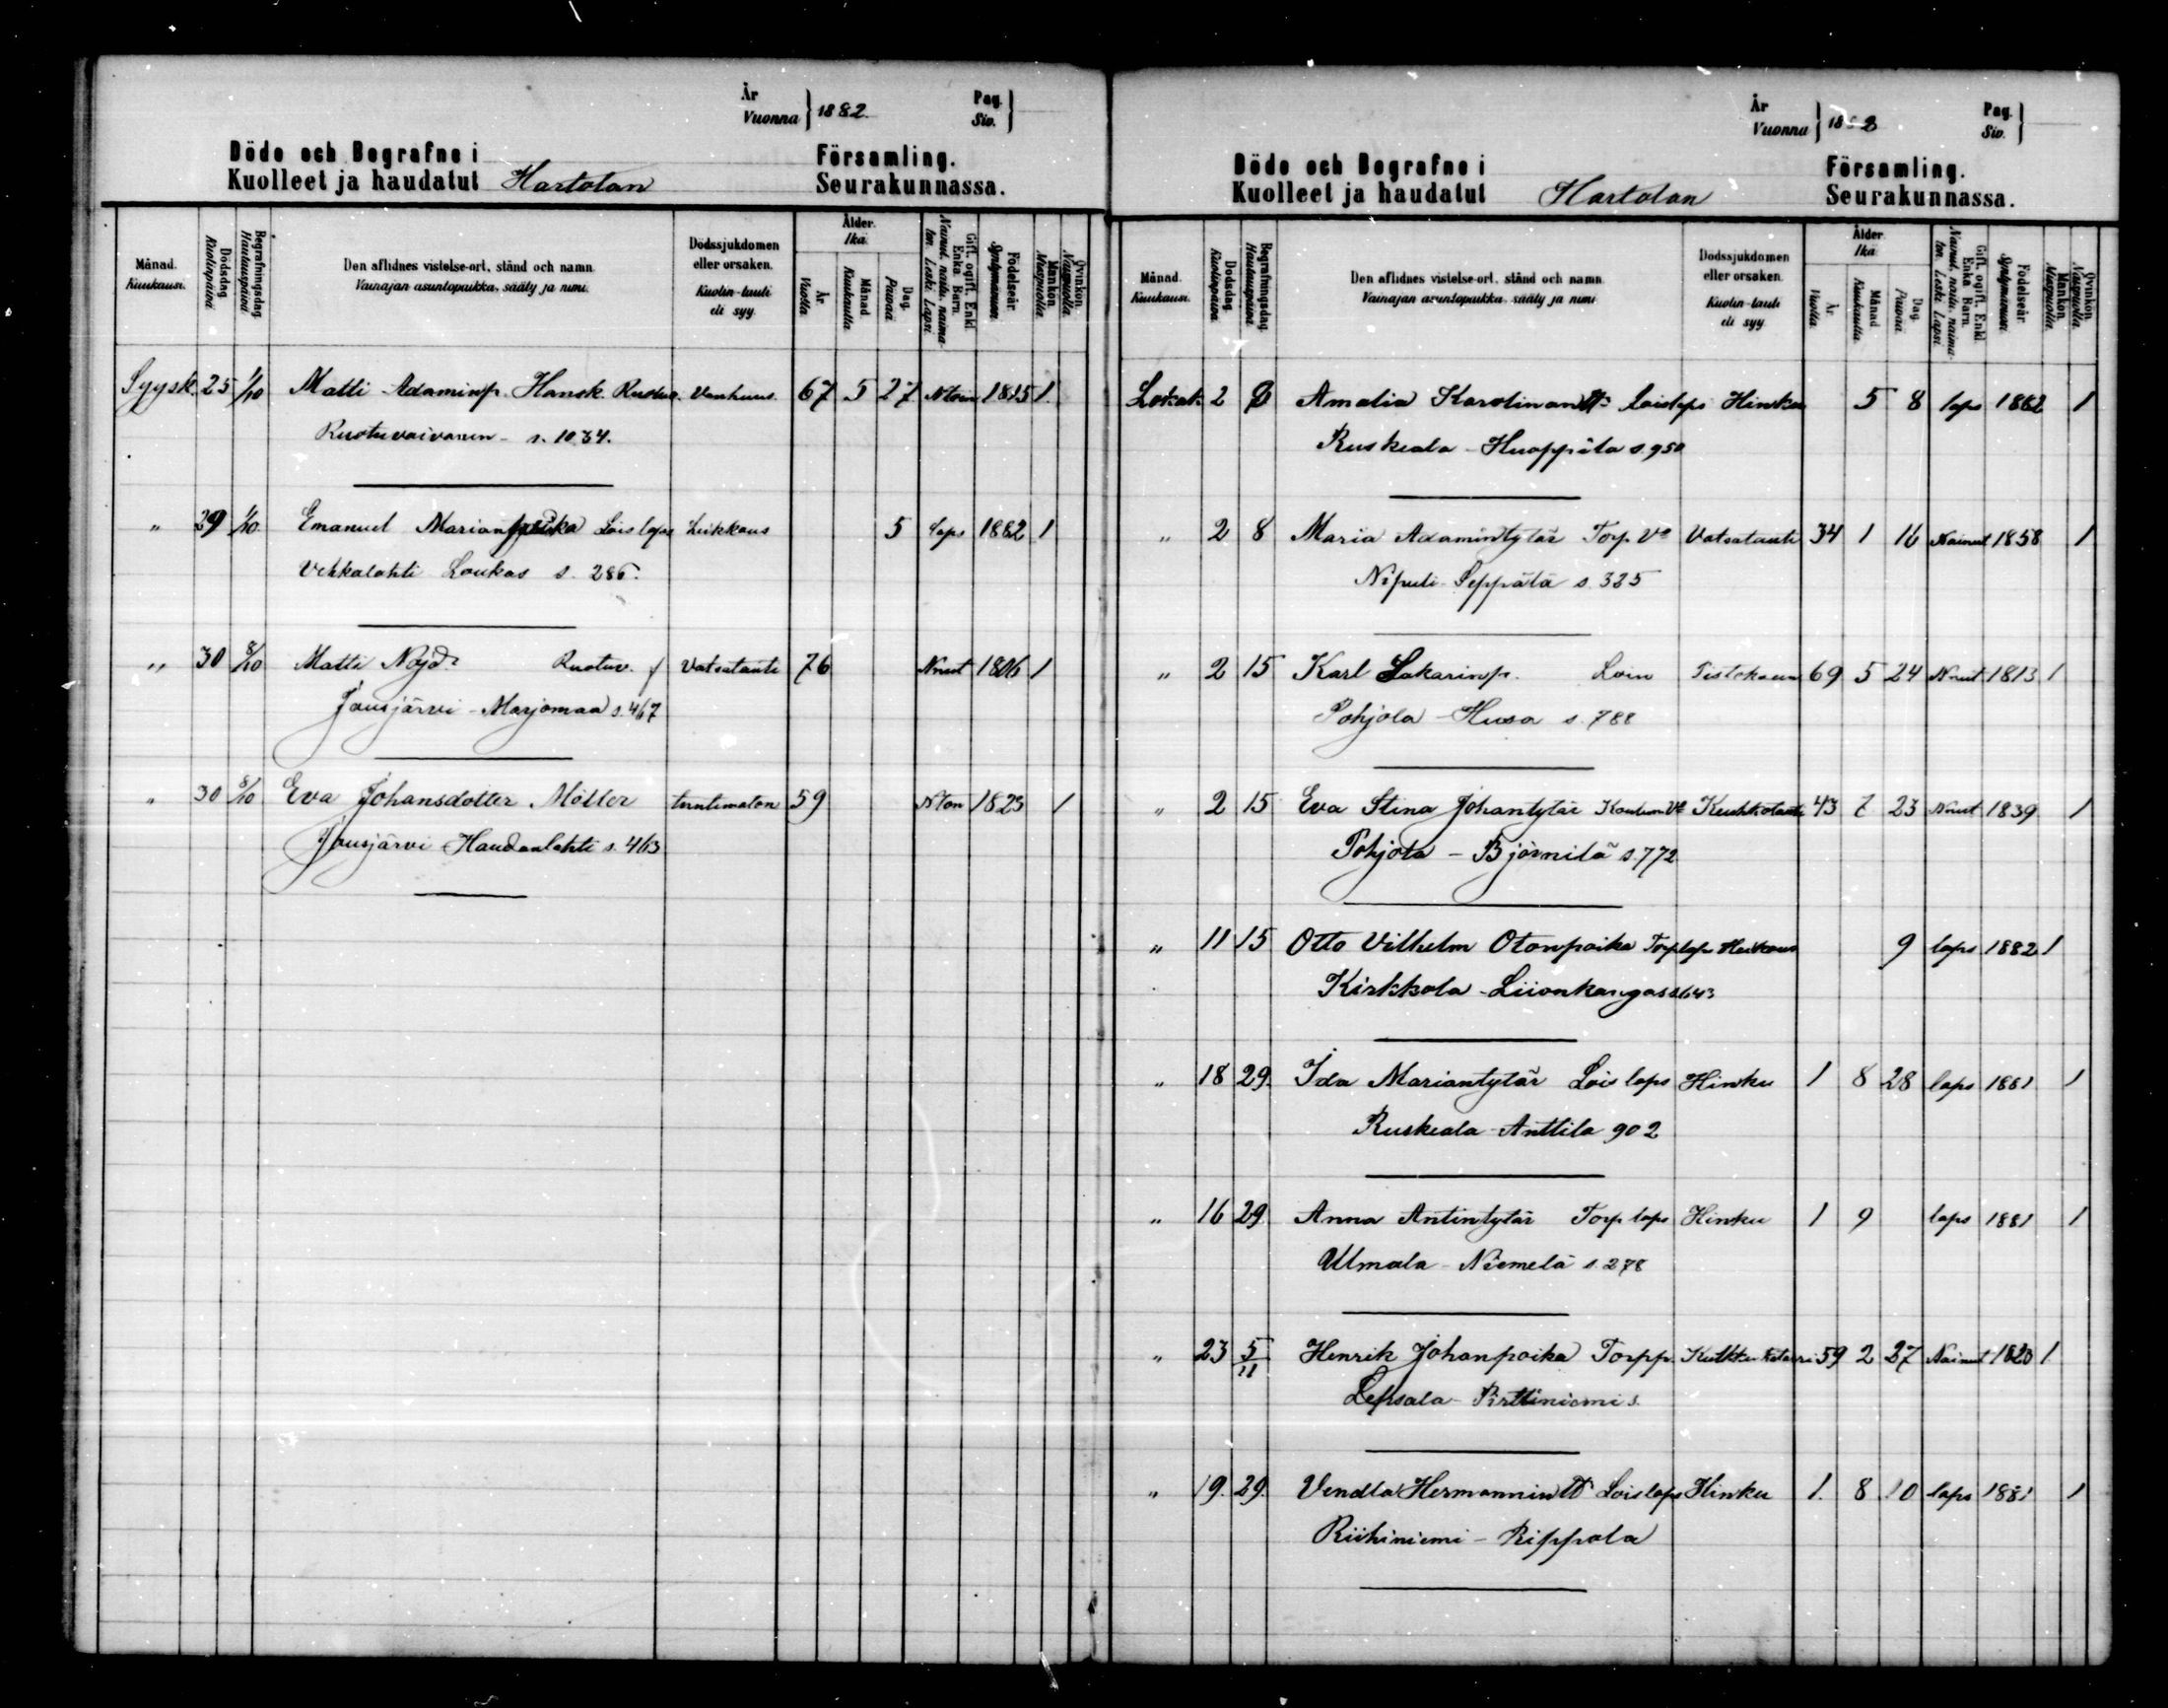 År
Vuonna } 1882.
Pag.
Siv. }
Döde och Begrafne i
Kuolleet ja haudatut Hartolan
Församling.
Seurakunnassa.
Månad. Kuukausi.
Dödsdag. Kuolinpäivä
Begrafningsdag. Hautauspäivä
Den aflidnes vistelse-ort, stånd och namn.
Vainajan asuntopaikka, sääty ja nimi.
Dödssjukdomen eller orsaken.
Kuolin-tauti eli syy.
Ålder. Ikä.
År. Vuotta
Månad Kuukautta
Dag. Päivää
Gift, ogift, Enkl. Enka. Barn.
Nainut, naitu, naimaton. Leski. Lapsi.
Födelseår. Syntymävuosi.
Mankön. Miespuolia.
Qvinkön. Naispuolia.
Syysk. 25 1/10 Matti Adaminp. Hansk. Vanhuus. 67 5 27 Ntoin 1815 1.
Ruotuvaivanen - s. 1034.
" 29 1/10 Emanuel Marianpoika Lois laps Leikkaus 5 laps 1882 1
Vehkalahti Loukas s. 286.
" 30 8/10 Matti Nöjd Ruotuv. Vatsatauti 76 Nnut 1806 1
Jousjärvi - Marjomaa s. 467
" 30 8/10 Eva Johansdotter Möller tuntematon 59 Nton 1823 1
Jousjärvi - Haudanlahti s. 463
År
Vuonna } 1882
Pag.
Siv. }
Döde och Begrafne i
Kuolleet ja haudatut Hartolan
Församling.
Seurakunnassa.
Månad. Kuukausi.
Dödsdag. Kuolinpäivä
Begrafningsdag. Hautauspäivä
Den aflidnes vistelse-ort, stånd och namn.
Vainajan asuntopaikka, sääty ja nimi.
Dödssjukdomen eller orsaken.
Kuolin-tauti eli syy.
Ålder. Ikä.
År. Vuotta
Månad Kuukautta
Dag. Päivää
Gift, ogift, Enkl. Enka. Barn.
Nainut, naitu, naimaton. Leski. Lapsi.
Födelseår. Syntymävuosi.
Mankön. Miespuolia.
Qvinkön. Naispuolia.
Lokak. 2 8 Amalia Karolinantr Loislaps Hinku 5 8 laps 1882 1
Ruskeala - Huoppila s. 950
" 2 8 Maria Adamintytär Torp. Vo Vatsatauti 34 1 16 Nainut 1858 1
Nipuli Seppälä s. 325
" 2 15 Karl Sakarinp. Loin Pistoksen 69 5 24 Nnut 1813 1
Pohjola - Husa s. 788
" 2 15 Eva Stina Johantytär Vo Keuhkotauti 43 7 23 Nnut 1839 1
Pohjola - Björnilä s. 772
" 11 15 Otto Vilhelm Otonpoika Torplaps 9 laps 1882 1
Kirkkola - Liionkangas s. 643
" 18 29. Ida Mariantytär Lois laps Hinku 1 8 28 laps 1881 1
Ruskeala - Anttila 902
" 16 29 Anna Antintytär Torp laps Hinku 1 9 laps 1881 1
Ulmala - Niemelä s. 278
" 23 5/11 Henrik Johanpoika Torpp. 59 2 27 Nainut 1823 1
Lepsala - Pirttiniemi s.
" 19. 29. Vendla Hermannintr Loislaps Hinku 1. 8 10 laps 1881 1
Riihiniemi - Rippola